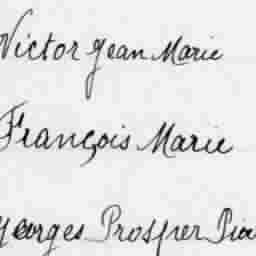 Victor Jean Marie
François Marie
Georges Prosper